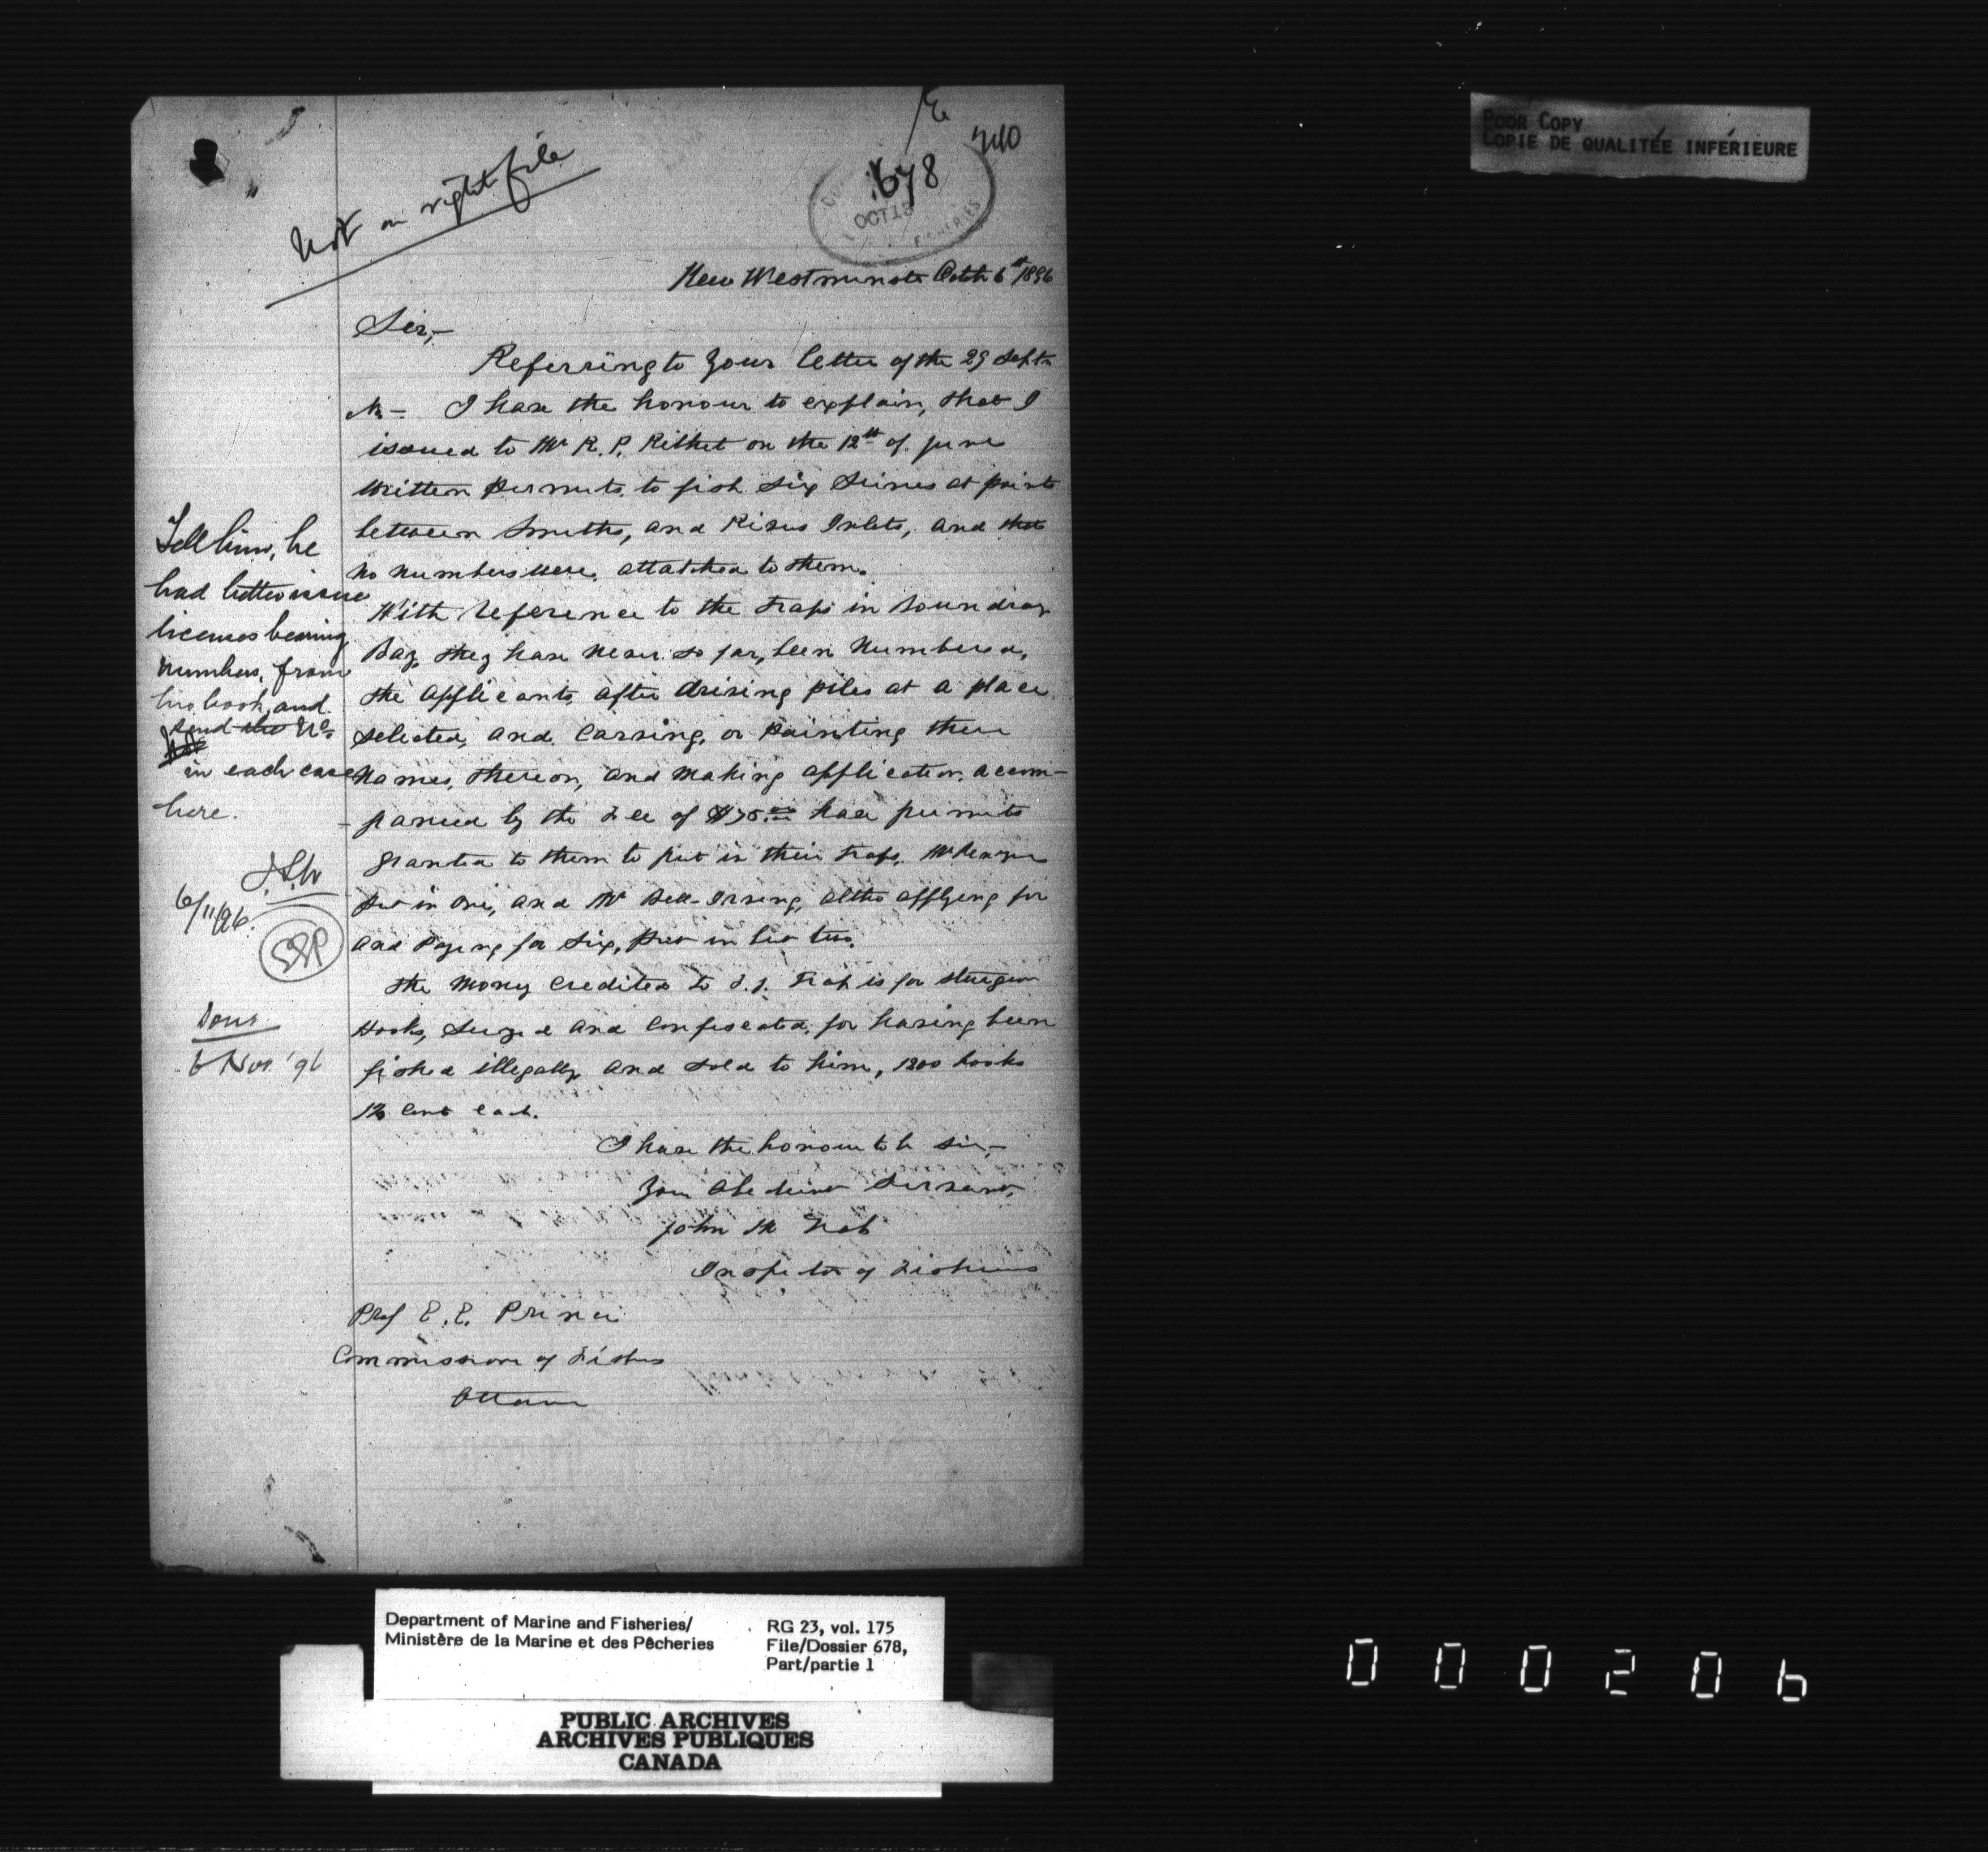 POOR COPY
COPIE DE QUALITÉE INFÉRIEURE
E
678
OCT 13
FISHERIES
Not on right file
New Westminster Octob 6th 1896
Sir,-
Referring to your letter of the 29 Septr
I have the honour to explain, that I
issued to Mr R. P. Rithet on the 12th of June
written permits, to fish six Seines at points
between Smiths, and Rivers Inlets, and that
no numbers were, attatched to them.
With reference to the traps in Boundray
Bay, they have never so far, been numbered,
the applicants, after driving piles at a place
selected, and carving, or painting their
names, thereon, and making application, accom-
-panied by the fee of $75.00 have permits
granted to them to put in their traps. Mr
put in one, and Mr Bell-Irving, altho applying for
and paying for six, put in but two.
The money credited to is for sturgeon
Hooks, seized and confiscated, for having been
fished illegally and sold to him, 1200 hooks
cent each.
I have the honour to be sir,-
Your obedient servant,
John
Inspector of Fisheries
Prof E. E. Prince
Commissioner of Fishes
Ottawa
Tell him, he
had better issue
licenses bearing
numbers, from
his book, and
send the No
in each case
here.
6/11/96.
EEP
Done
6 Nov. '96
Department of Marine and Fisheries/
Ministère de la Marine et des Pêcheries
RG 23, vol. 175
File/Dossier 678,
Part/partie 1
PUBLIC ARCHIVES
ARCHIVES PUBLIQUES
CANADA
000206